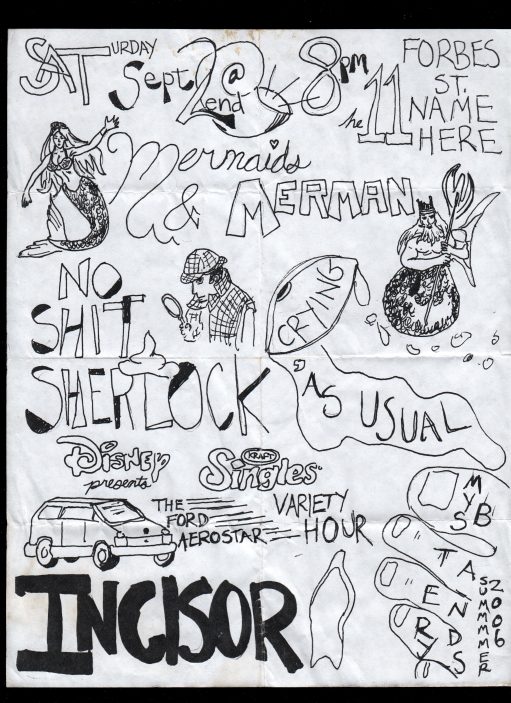 SATURDAY Sept 2end @ 8pm
he 11 FORBES
ST.
NAME
HERE
Mermaids
& MERMAN
NO
SHIT
SHERLOCK
CRYING
"AS USUAL
DISNEP
presents
KRAFT
Singles
THE
FORD
AEROSTAR
VARIETY
HOUR
INCISOR
MYSTERY
BANDS
SUMMMMER
2006